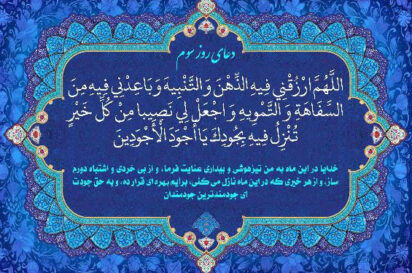 دعای روز سوم
اللَّهُمَّ ارْزُقْنِي فِيهِ الذِّهْنَ وَ التَّنْبِيهَ وَ بَاعِدْنِي فِيهِ مِنَ
السَّفَاهَةِ وَ التَّمْوِيهِ وَ اجْعَلْ لِي نَصِيبا مِنْ كُلِّ خَيْرٍ
تُنْزِلُ فِيهِ بِجُودِكَ يَا أَجْوَدَ الْأَجْوَدِينَ
خدایا در این ماه به من تیزهوشی و بیداری عنایت فرما، و از بی خردی و اشتباه دورم
ساز، و از هر خیری که در این ماه نازل می کنی، برایم بهره ای قرار ده، و به حق جودت
ای جودمندترین جودمندان